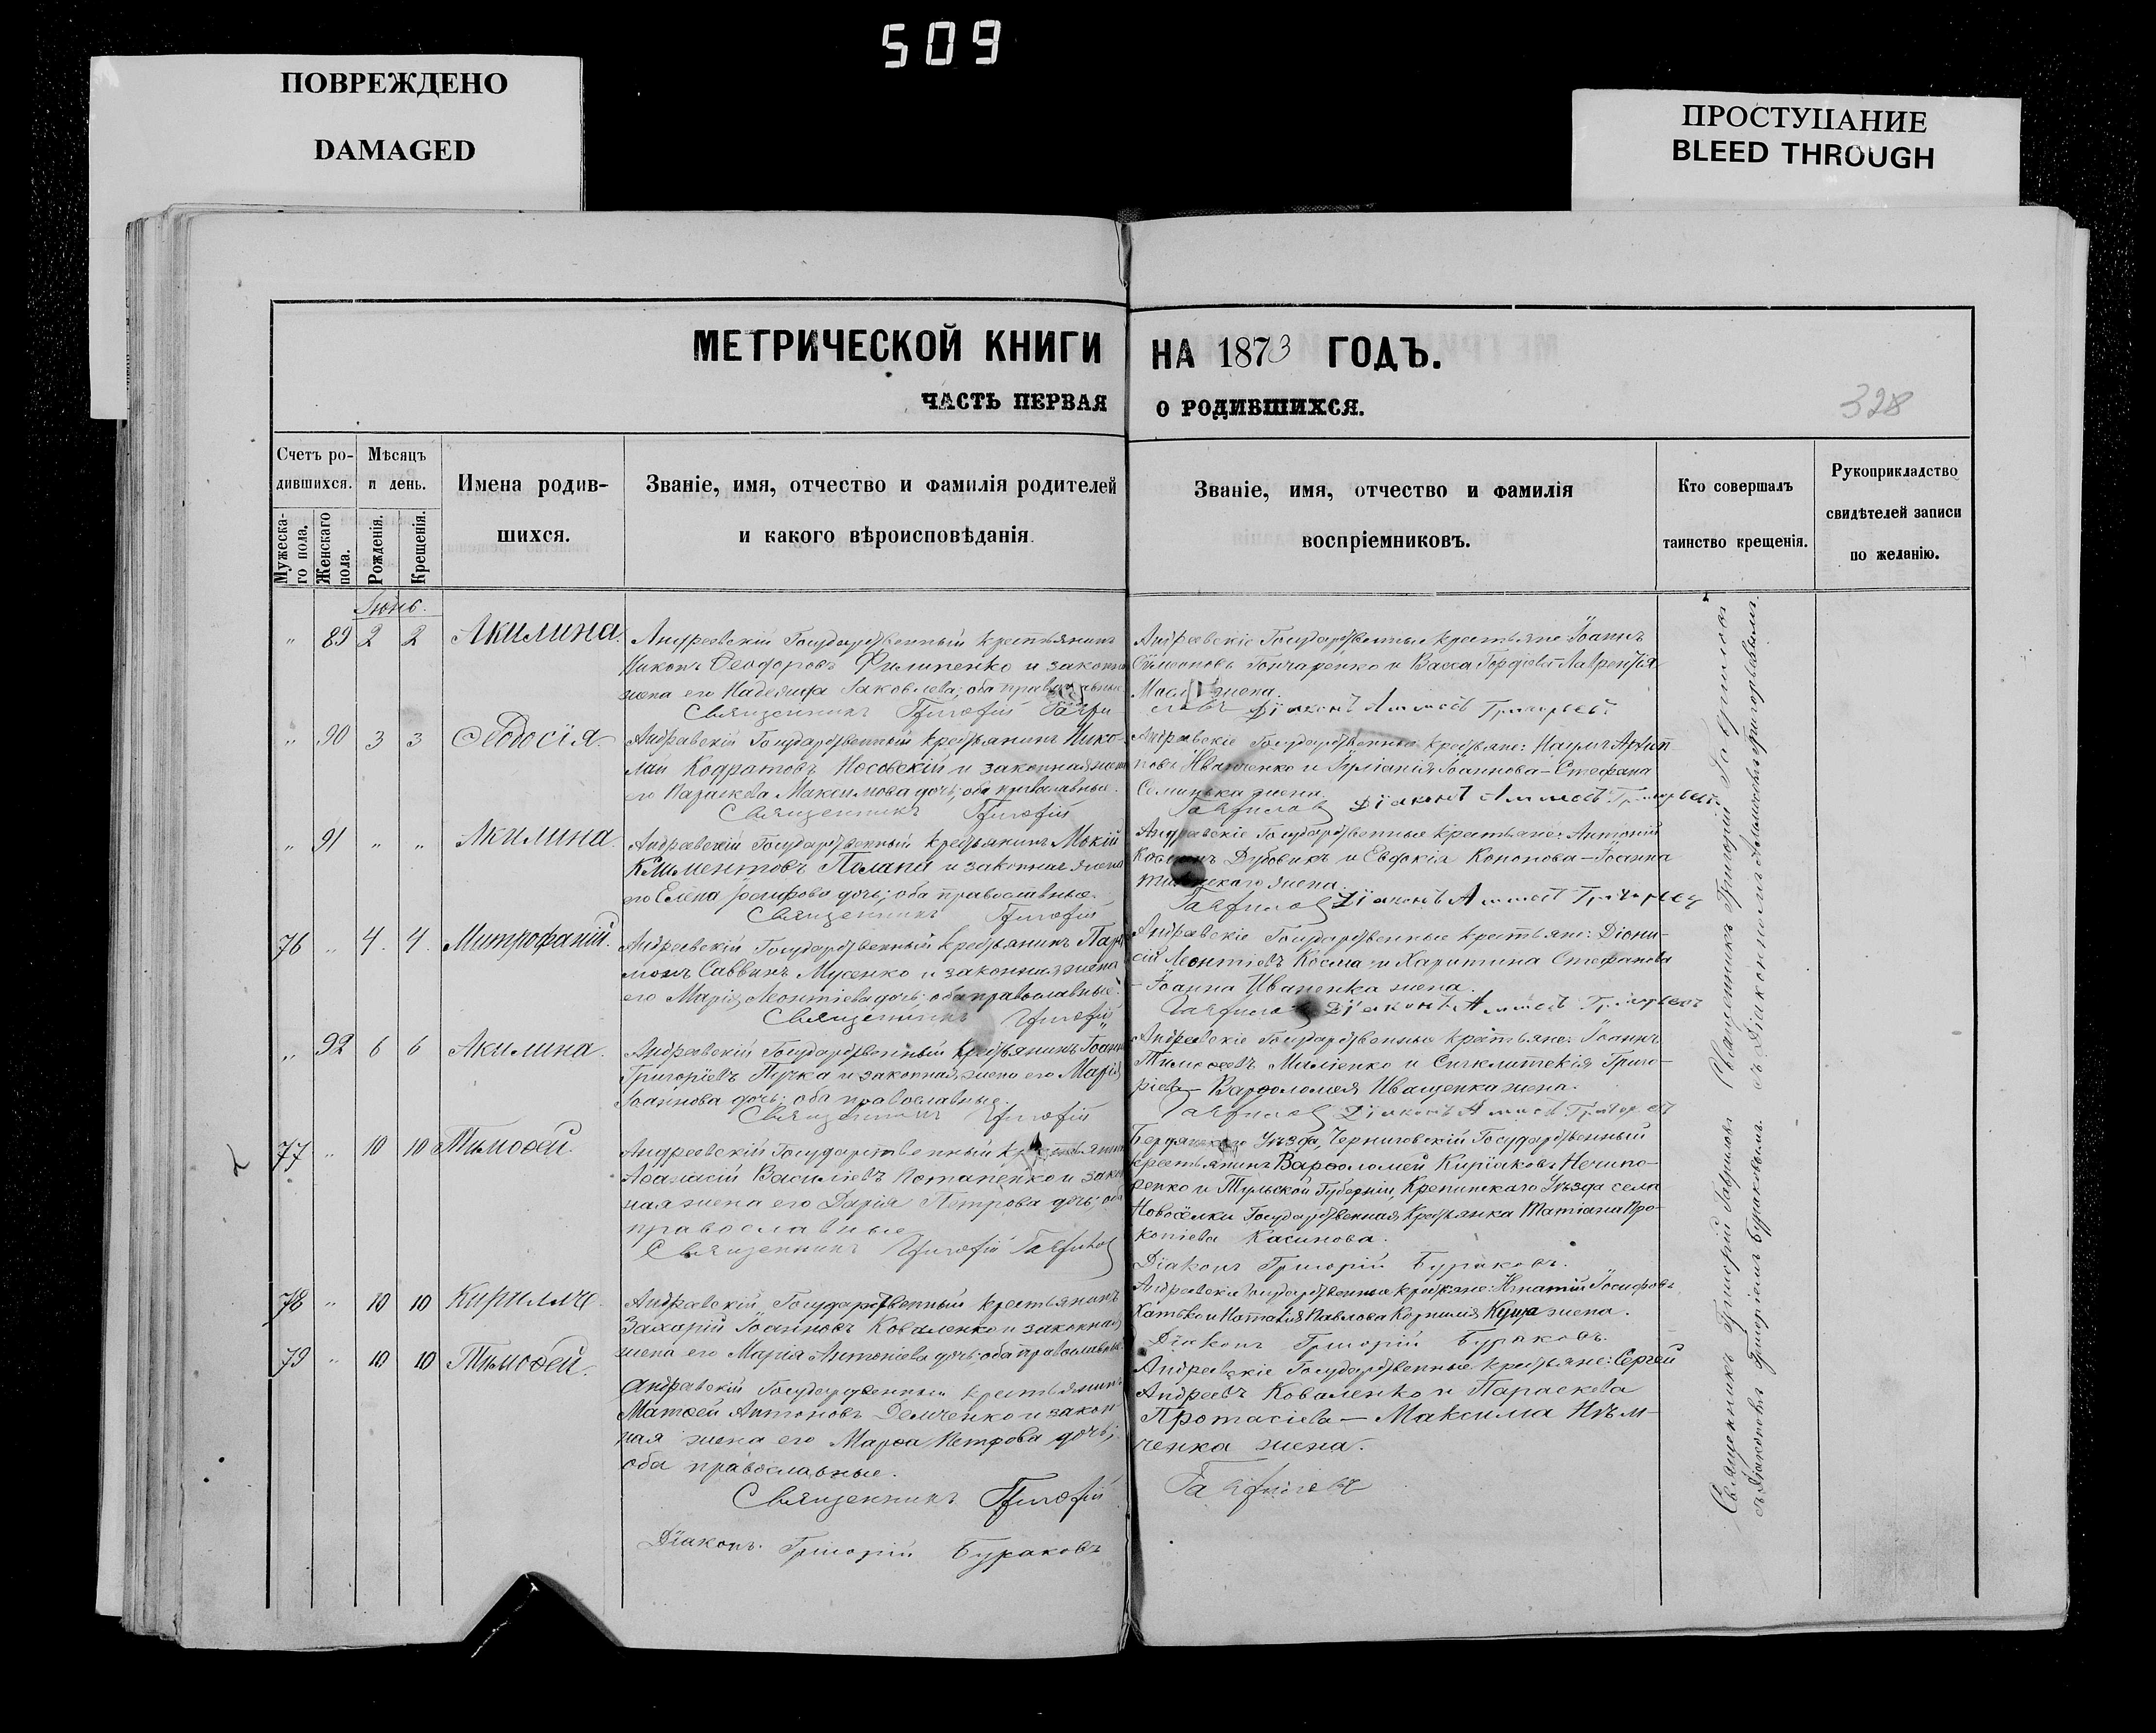 509
ПОВРЕЖДЕНО
DAMAGED
ПРОСТУПАНИЕ
BLEED THROUGH
МЕТРИЧЕСКОЙ КНИГИ НА 1873 ГОДЪ.
ЧАСТЬ ПЕРВАЯ О РОДИВШИХСЯ.
328
Счетъ ро-
дившихся.
Мужеска-
го пола.
Женскаго
пола.
Мѣсяцъ
и день.
Рожденія.
Крещенія.
Имена родив-
шихся.
Званіе, имя, отчество и фамилія родителей
и какого вѣроисповѣданія.
Званіе, имя, отчество и фамилія
воспріемниковъ.
Кто совершалъ
таинство крещенія.
Рукоприкладство
свидѣтелей записи
по желанію.
Іюнь.
" 89 2 2 Акилина.
Андреевскій Государственный крестьянинъ
Никонъ Ѳеодоровъ Филипенко и законная
жена его Надежда Іаковлева; оба православные
Андреевскіе Государственные крестьяне: Іоаннъ
Симеоновъ Гончаренко и Васса Гордіева Лаврентія
жена.
Священникъ Григорій Гаври
ловъ Діаконъ Григорьевъ
" 90 3 3 Ѳеодосія.
Андреевскій Государственный крестьянинъ Нико-
лай Кодратовъ Носовскій и законная жена
его Параскева Максимова дочь; оба православные.
Андреевскіе Государственные крестьяне: Наумъ Архип-
повъ Иванченко и Іуліанія Іоаннова – Стефана
жена.
Священникъ Григорій
Гавриловъ Діаконъ Григорьевъ
" 91 " " Акилина.
Андреевскій Государственный крестьянинъ Мокій
Климентовъ и законная жена
его Елена Іосифова дочь; оба православные.
Андреевскіе Государственные крестьяне: Антоній
Дубовикъ и Евдокія Кононова – Іоанна
жена.
Священникъ Григорій
Гавриловъ Діаконъ Григорьевъ
76 " 4. 4. Митрофаній.
Андреевскій Государственный крестьянинъ Пар-
монъ Саввинъ Мусенко и законная жена
его Марія Леонтіева дочь; оба православные.
Андреевскіе Государственные крестьяне: Діони-
сій Леонтіевъ Косма и Харитина Стефанова
– Іоанна Иваненка жена.
Священникъ Григорій
Гавриловъ Діаконъ Григорьевъ
" 92 6 6 Акилина.
Андреевскій Государственный крестьянинъ Іоаннъ
Григоріевъ Пучка и законная жена его Марія
Іоаннова дочь; оба православные.
Андреевскіе Государственные крестьяне: Іоаннъ
Тимоѳеевъ и Синклитекія Григо-
ріева – Варѳоломея Иващенка жена.
Священникъ Григорій
Гавриловъ Діаконъ
77 " 10 10 Тимоѳей.
Андреевскій Государственный крестьянинъ
Аѳанасій Василіевъ Потапенко и закон
ная жена его Дарія Петрова дочь; оба
православные
Бердянскаго Уѣзда, Черниговскій Государственный
крестьянинъ Варѳоломей Киріаковъ Нечипо-
ренко и Тульской Губерніи, Крепинскаго Уѣзда села
Новоселки Государственная Крестьянка Татіана Про-
копіева Касинова.
Священникъ Григорій Гавриловъ
Діаконъ Григорій Бураковъ.
78 " 10 10 Кириллъ.
Андреевскій Государственный крестьянинъ
Захарій Іоанновъ Коваленко и законная
жена его Марія Антоніева дочь; оба православные
Андреевскіе Государственные крестьяне: Игнатій Іосифовъ
и Наталія Павлова Корнилія жена.
Діаконъ Григорій Бураковъ.
79 " 10 10 Тимоѳей.
Андреевскій Государственный крестьянинъ
Матѳей Антоновъ Демченко и закон
ная жена его Марѳа Петрова дочь;
оба православные.
Андреевскіе Государственные крестьяне: Сергей
Андреевъ Коваленко и Параскева
Протасіева – Максима Нѣм-
ченка жена.
Священникъ Григорій
Гавриловъ
Діаконъ Григорій Бураковъ
Священникъ Григорій Гавриловъ
съ Діакономъ Григорьевымъ.
Священникъ Григорій Гавриловъ
съ Діакономъ Григоріемъ Бураковымъ.